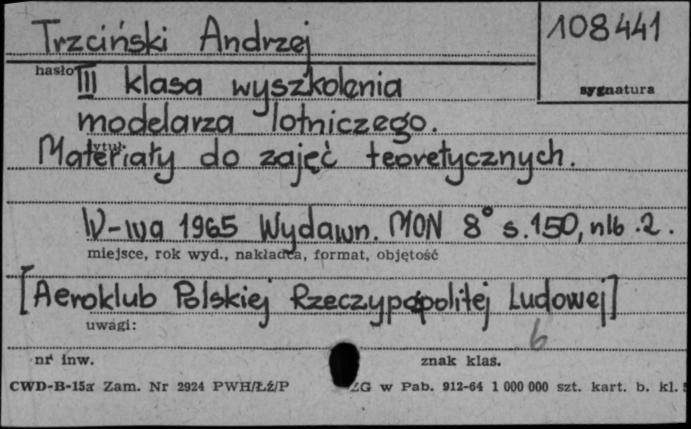 Trzciński Andrzej
108441
hasło
III klasa wyszkolenia
sygnatura
modelarza lotniczego.
tytuł
Materiały do zajęć teoretycznych.
W-wa 1965 Wydawn. MON 8° s.150, nlb.2.
miejsce, rok wyd., nakładca, format, objętość
[Aeroklub Polskiej Rzeczypopolitej Ludowej]
uwagi:
6
nr inw.
znak klas.
CWD-B-15a Zam. Nr 2924 PWH/Łź/P
ZG w Pab. 912-64 1 000 000 szt. kart. b. kl.